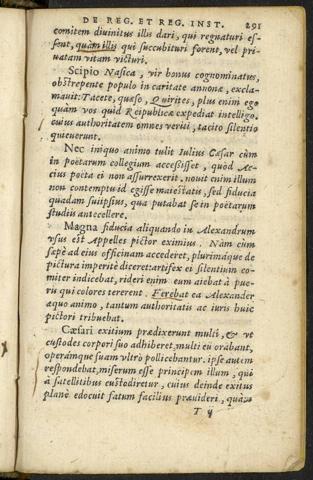 DE REG. ET REG. INST. 291
comitem diuinitus illis dari, qui regnaturi es-
sent, quàm illis qui succubituri forent, vel pri-
uatam vitam victuri.
Scipio Nasica, vir bonus cognominatus,
obstrepente populo in caritate annonæ, excla-
mauit: Tacete, quæso, Quirites, plus enim ego
quàm vos quid Reipublicæ expediat intelligo.
cuius authoritatem omnes veriti, tacito silentio
quieuerunt.
Nec iniquo animo tulit Iulius Cæsar cùm
in poëtarum collegium accessisset, quòd Ac-
cius poëta ei non assurrexerit. nouit enim illum
non contemptu id egisse maiestatis, sed fiducia
quadam suiipsius, qua putabat se in poëtarum
studiis antecellere.
Magna fiducia aliquando in Alexandrum
vsus est Appelles pictor eximius. Nàm cùm
sæpè ad eius officinam accederet, plurimáque de
pictura imperitè diceret: artifex ei silentium co-
miter indicebat, rideri enim eum aiebat à pue-
ris qui colores tererent. Ferebat ea Alexander
æquo animo, tantum authoritatis ac iuris huic
pictori tribuebat.
Cæsari exitium prædixerunt multi, & vt
custodes corpori suo adhiberet, multi eū orabant,
operámque suam vltrò pollicebantur. ipse autem
respondebat, miserum esse principem illum, qui
à satellitibus custodiretur, cuius deinde exitus
planè edocuit fatum facilius præuideri, quàm
T ij